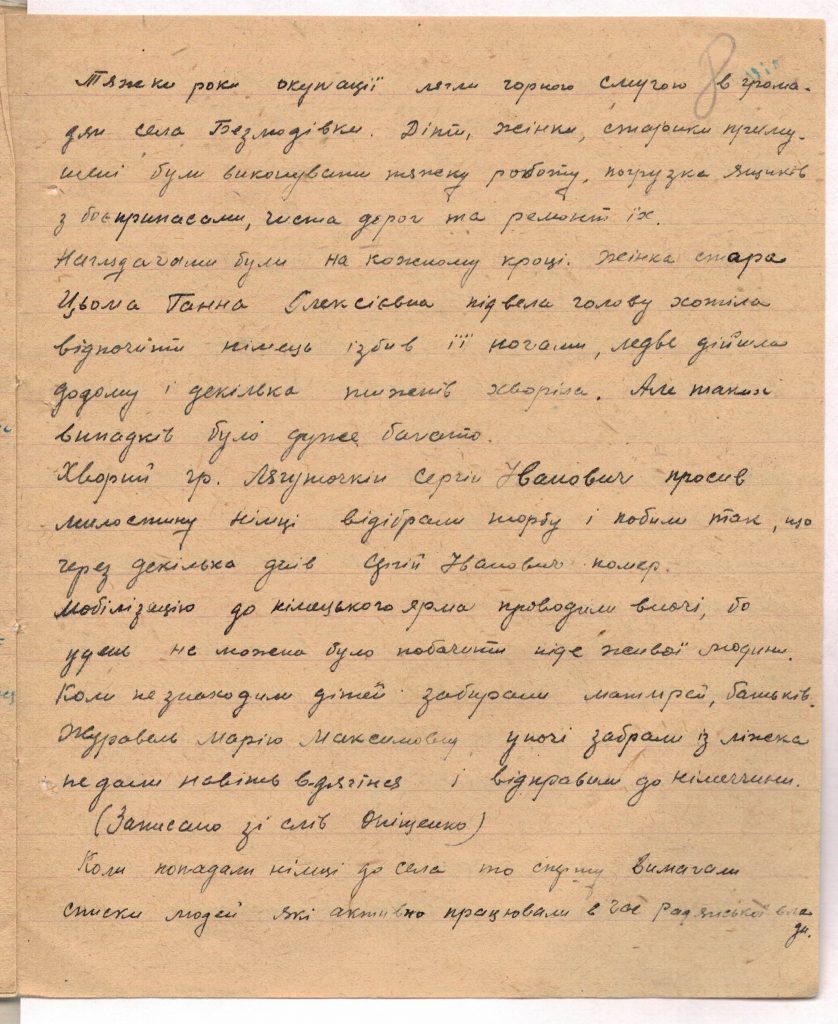 8
Тяжки роки окупації лягли чорною смугою в грома-
дян села Безлюдівки. Діти, жінки, старики приму-
шені були виконувати тяжку роботу, погрузка ящиків
з боєприпасами, чистка дорог та ремонт їх.
Наглядачами були на кожному кроці. Жінка стара
Цьома Ганна Олексієвна підвела голову хотіла
відпочити німець ізбив її ногами, ледве дійшла
додому і декілька тижнів хворіла. Але таких
випадків було дуже багато.
Хворий гр. Лягушочкін Сергій Іванович просив
милостину німці відібрали торбу і побили так, що
через декілька днів Сергій Іванович помер.
Мобілізацію до німецького ярма проводили вночі, бо
удень не можна було побачити ніде живої людини.
Коли не знаходили дітей забирали матирей, батьків.
Журавель Марію Максимовну уночі забрали із ліжка
не дали навіть вдягтися і відправили до німеччини.
(Записано зі слів Оніщенко)
Коли попадали німці до села то спершу вимагали
списки людей які активно працювали в час Радянської вла
ди.